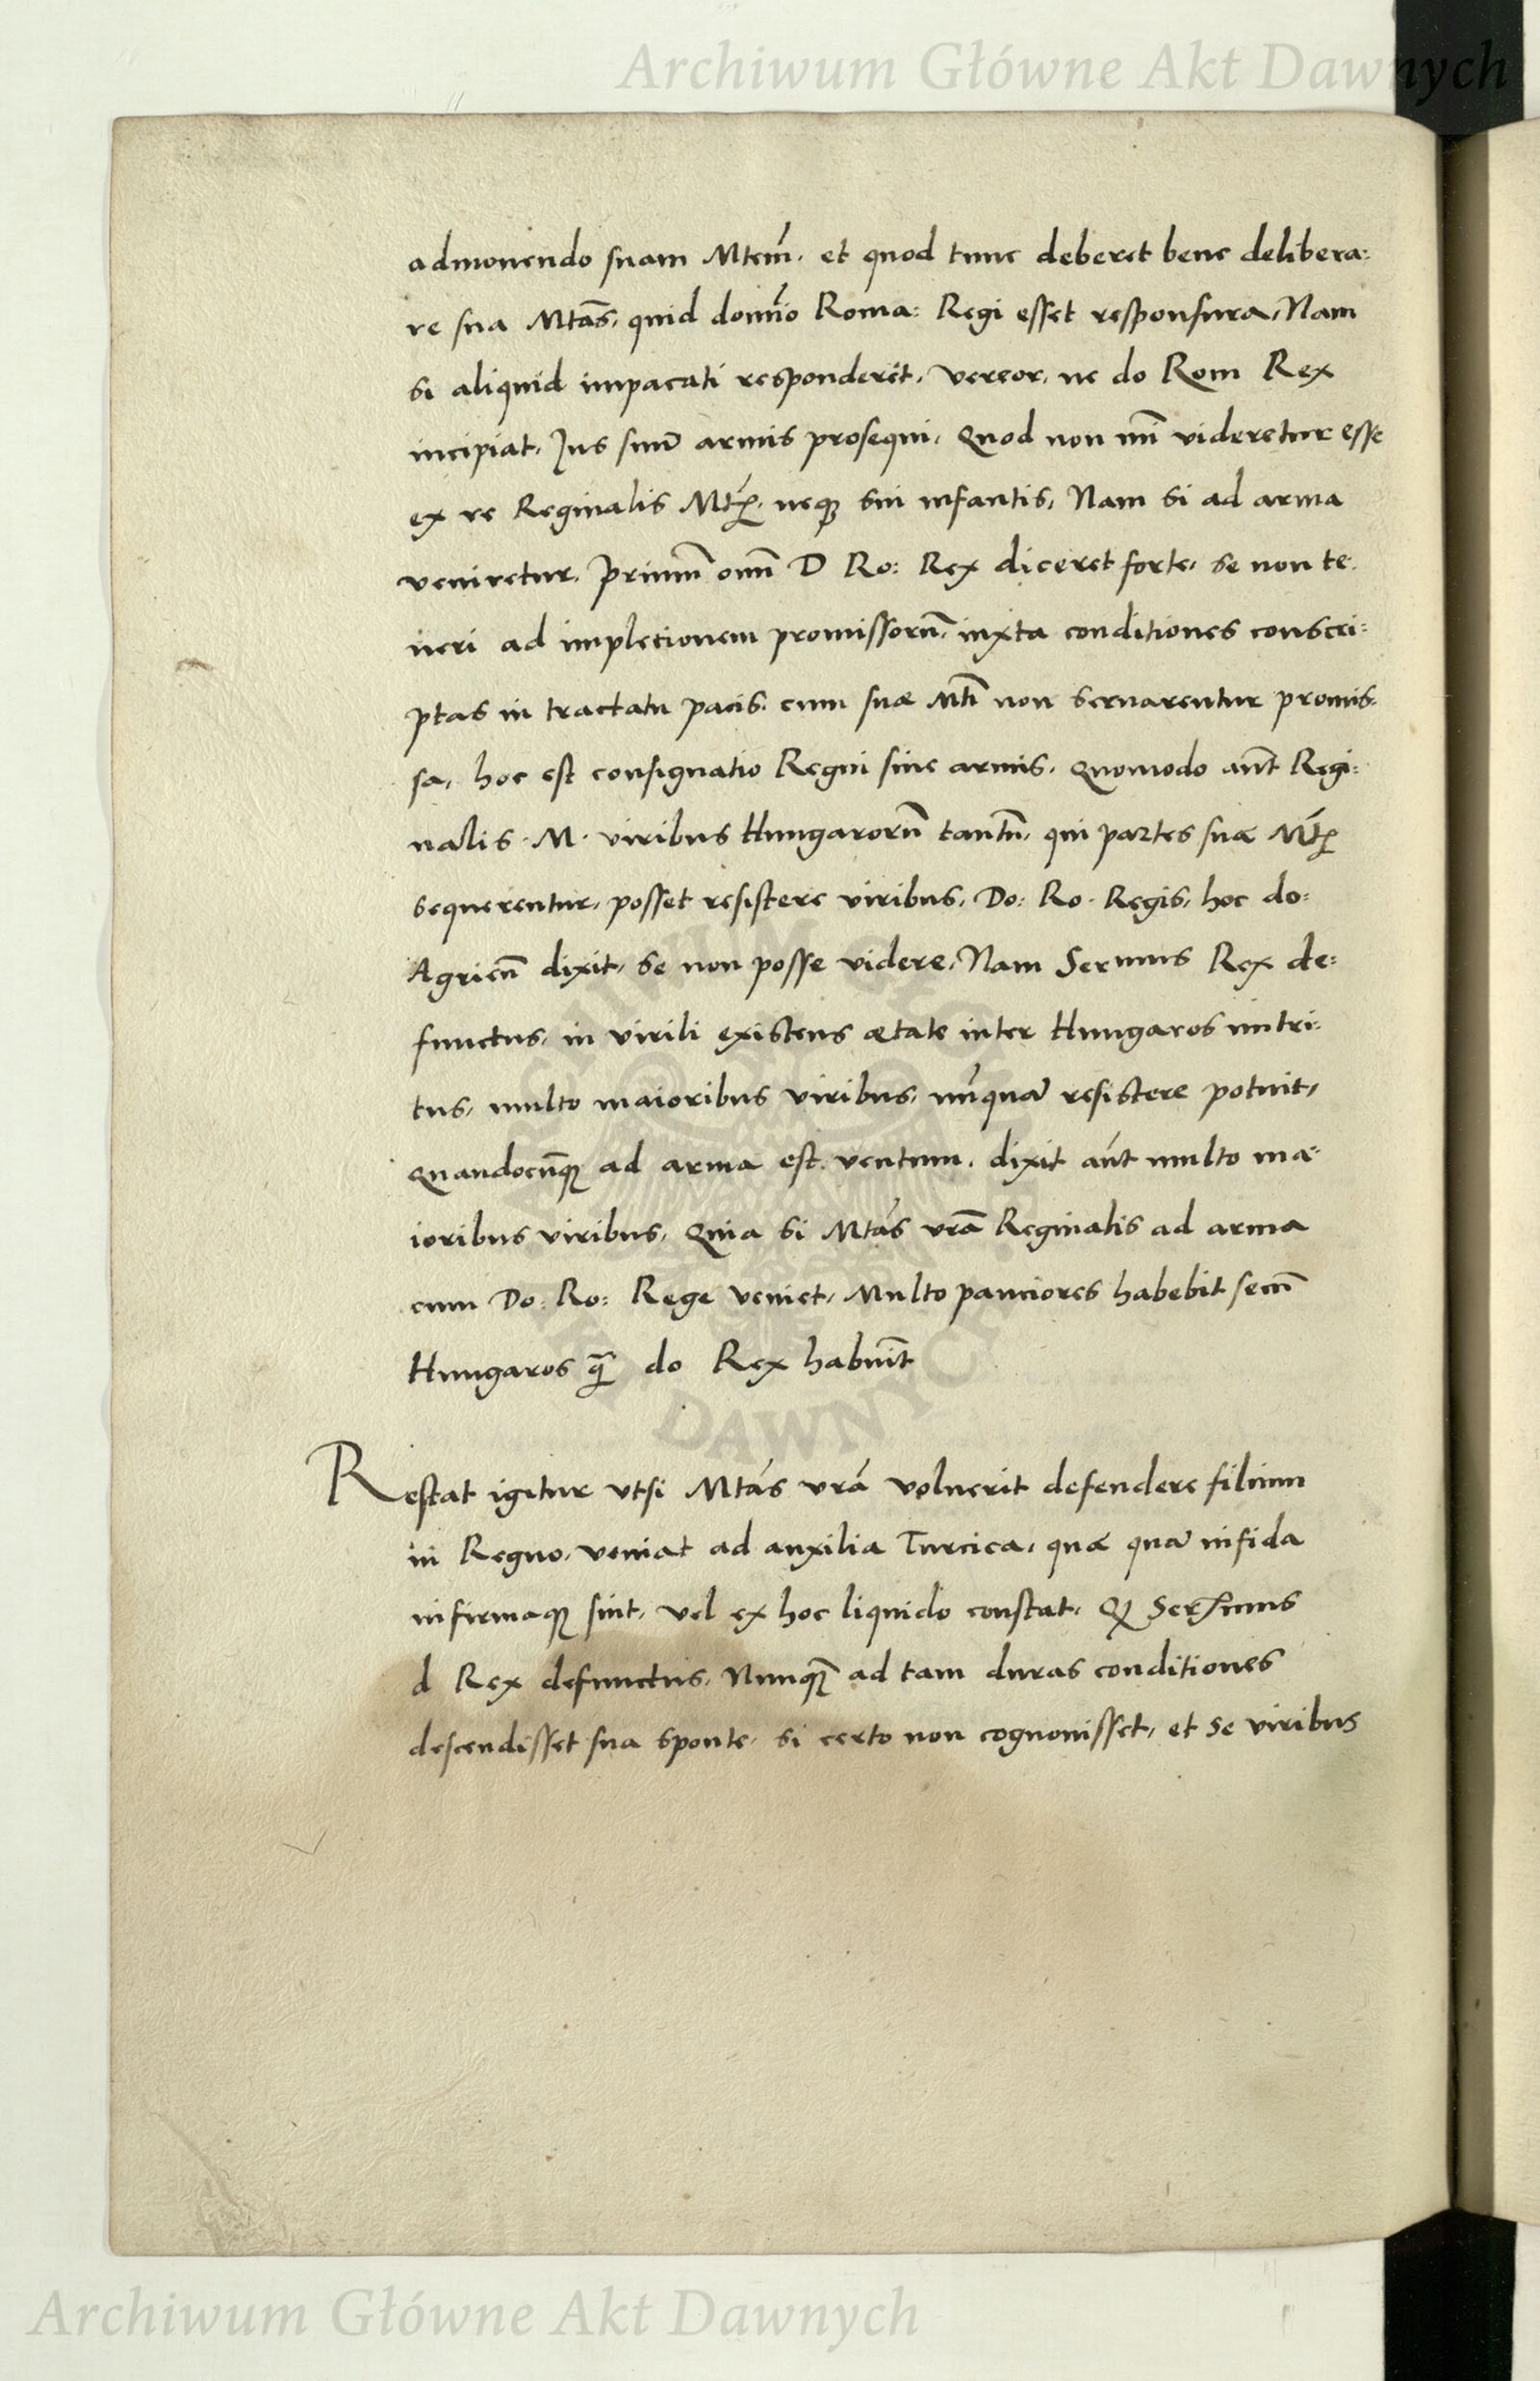 Archiwum Główne Akt Dawnych
admonendo suam Mtem̃, et quod tunc deberet bene delibera:
re sua Mtãs, quid domĩo Roma: Regi esset responsura, Nam
si aliquid impacati responderet, vereor, ne do Rom Rex
incipiat, Jus suũ armis prosequi, Quod non mĩ videretur esse
ex re Reginalis Mtis, neq; sui infantis, Nam si ad arma
veniretur, Primum oĩm D Ro: Rex diceret forte, se non te:
neri ad impletionem promissorũ, iuxta conditiones conscri:
ptas in tractatu pacis, cum suæ Mtĩ non servarentur promis:
sa, hoc est consignatio Regni sine armis, Quomodo aũt Regi:
nalis M. viribus Hungarorũ tantũ, qui partes suæ Mtis
sequerentur, posset resistere viribus, Do: Ro. Regis, hoc do:
Agrieñ dixit, se non posse videre, Nam Sermus Rex de:
functus, in virili existens ætate inter Hungaros nutri:
tus, multo maioribus viribus, nũquã resistere potuit,
Quandocũq; ad arma est ventum, dixit aũt multo ma:
ioribus viribus, Quia si Mtãs vrã Reginalis ad arma
cum Do: Ro: Rege veniet, Multo pauciores habebit secũ
Hungaros q̃ do Rex habuĩt
Restat igitur ut si Mtãs vrã voluerit defendere filium
in Regno, veniat ad auxilia Turcica, quæ quã infida
infirmaq; sint, vel ex hoc liquido constat, Q Serẽmus
d Rex defunctus, Nunq̃ ad tam duras conditiones
descendisset sua sponte, si certo non cognovisset, et se viribus
Archiwum Główne Akt Dawnych